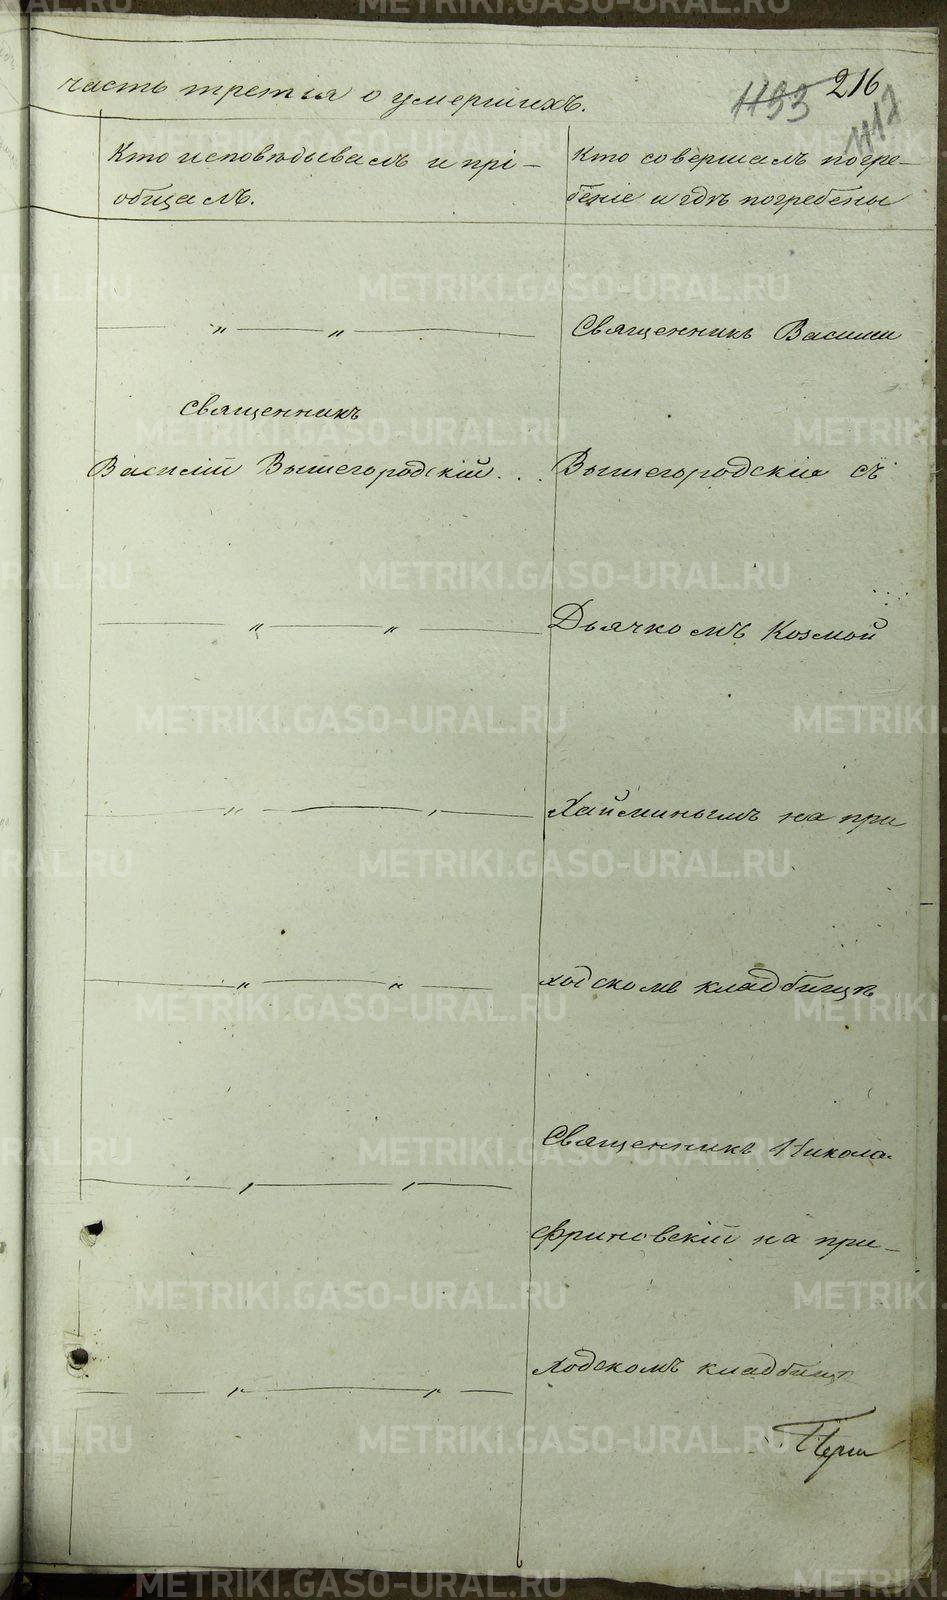 часть третія о умершихъ.
1133 216
1112
Кто исповѣдывалъ и прі-
общалъ.
Кто совершалъ погре-
беніе и гдѣ погребены
„ „
Священникъ Васили
Священникъ
Василій Вышегородскій . .
Вышегородскій съ
„ „
Дьячкомъ Козмой
„ „
Хайминымъ на при
„ „
ходскомъ кладбищѣ
Священникъ Никола
Фриновскій на при-
ходскомъ кладбищѣ
METRIKI.GASO-URAL.RU